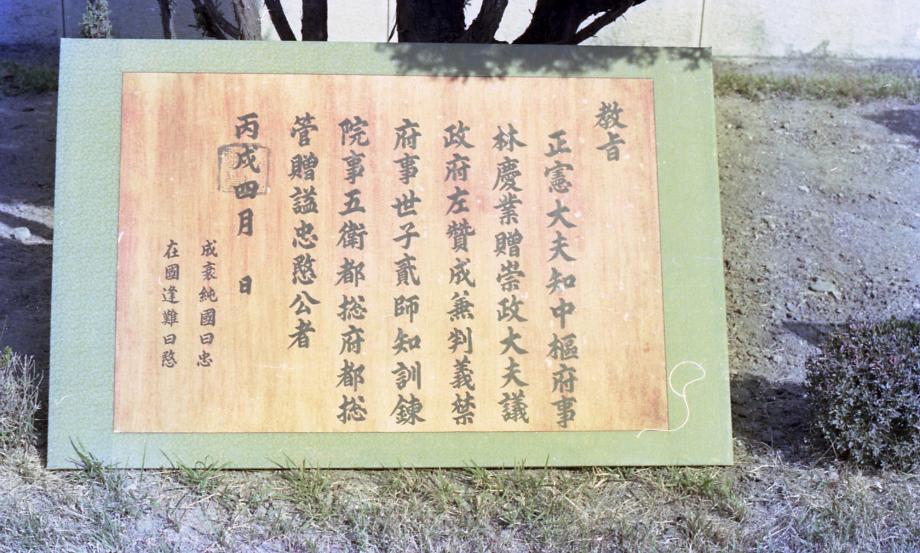 教旨
正憲大夫知中樞府事
林慶業贈崇政大夫議
政府左贊成兼判義禁
府事世子貳師知訓鍊
院事五衛都揔府都揔
管贈謚忠愍公者
丙戌四月 日
成衰純國曰忠
在國逢難曰愍